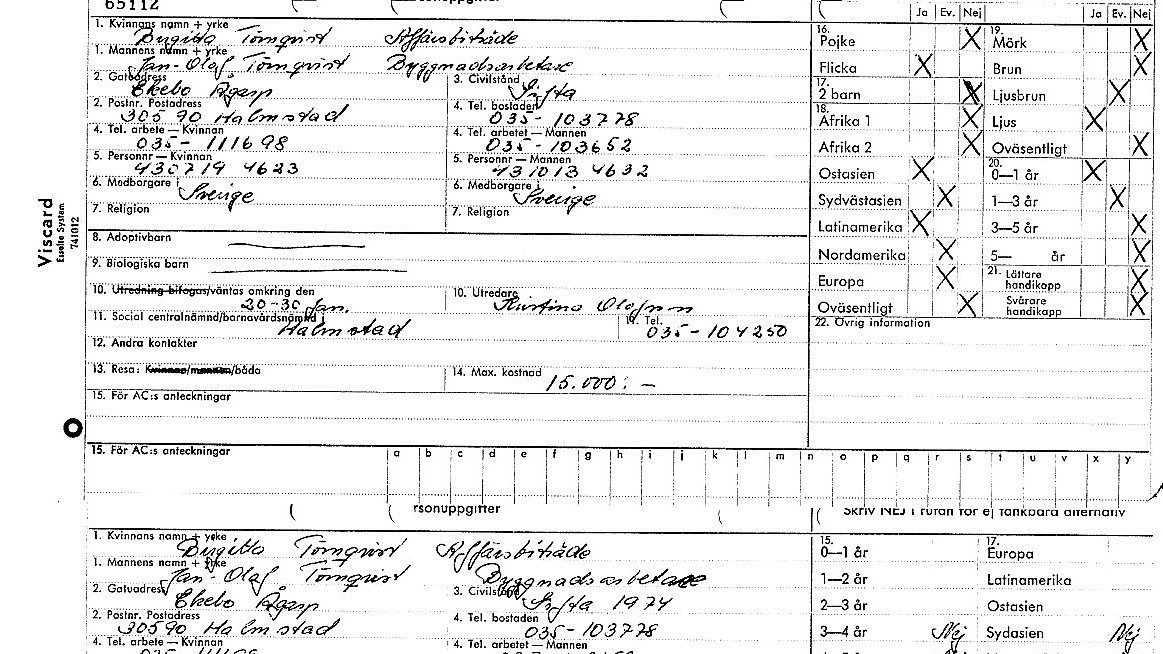 65112
rsonuppgifter
Ja Ev. Nej Ja Ev. Nej
1. Kvinnans namn + yrke
Birgitta Törnqvist Affärsbiträde
1. Mannens namn + yrke
Jan-Olof Törnqvist Byggnadsarbetare
2. Gatuadress
Ekebo Ågarp
3. Civilstånd
Gifta
2. Postnr. Postadress
305 90 Halmstad
4. Tel. bostaden
035-103778
4. Tel. arbete — Kvinnan
035-111698
4. Tel. arbetet — Mannen
035-103652
5. Personnr — Kvinnan
430719 4623
5. Personnr — Mannen
431013 4632
6. Medborgare i
Sverige
6. Medborgare i
Sverige
7. Religion
7. Religion
8. Adoptivbarn
9. Biologiska barn
10. Utredning bifogas/väntas omkring den
20-30 Jan.
10. Utredare
Kristina
11. Social centralnämnd/barnavårdsnämnd i
Halmstad
11. Tel.
035-104250
12. Andra kontakter
13. Resa: Kvinnan/mannen/båda
14. Max. kostnad
15.000:-
15. För AC:s anteckningar
16.
Pojke X
Flicka X
17.
2 barn X
18.
Afrika 1 X
Afrika 2 X
Ostasien X
Sydvästasien X
Latinamerika X
Nordamerika X
Europa X
Oväsentligt X
19.
Mörk X
Brun X
Ljusbrun X
Ljus X
Oväsentligt X
20.
0—1 år X
1—3 år X
3—5 år X
5— år X
21. Lättare
handikapp X
Svårare
handikapp X
22. Övrig information
Viscard
Esselte System
741012
15. För AC:s anteckningar
a b c d e f g h i j k l m n o p q r s t u v x y
rsonuppgifter
Skriv NEJ i rutan för ej tänkbara alternativ
1. Kvinnans namn + yrke
Birgitta Törnqvist Affärsbiträde
1. Mannens namn + yrke
Jan-Olof Törnqvist Byggnadsarbetare
2. Gatuadress
Ekebo Ågarp
3. Civilstånd
Gifta 1974
2. Postnr. Postadress
30590 Halmstad
4. Tel. bostaden
035-103778
4. Tel. arbete — Kvinnan
4. Tel. arbetet — Mannen
15.
0—1 år
1—2 år
2—3 år
3—4 år Nej
17.
Europa
Latinamerika
Ostasien
Sydasien Nej